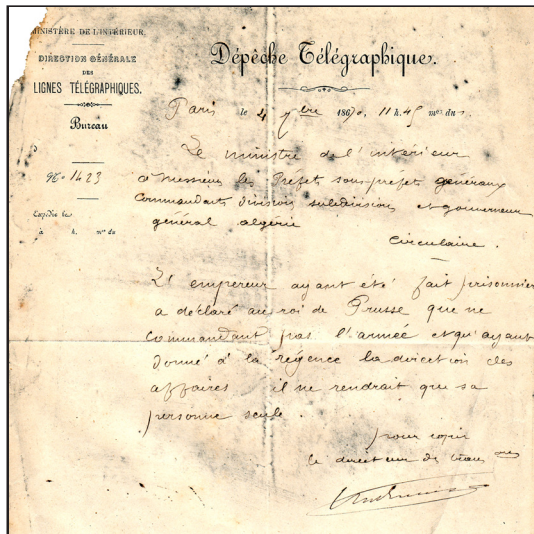 MINISTÈRE DE L'INTÉRIEUR.
DIRECTION GÉNÉRALE
DES
LIGNES TÉLÉGRAPHIQUES.
Bureau
N° 1423
Expédié le
à h. m du
Dépêche Télégraphique.
Paris le 4 7bre 1870, 11 h. 45 m du s.
Le ministre de l'intérieur
à messieurs les Préfet sous-préfet généraux
Commandants divisions subdivisions et gouverneur
général algérie
Circulaire.
L'empereur ayant été fait prisonnier
a déclaré au roi de Prusse que ne
Commandant pas l'armée et qu'ayant
donné à la régence la direction des
affaires il ne rendrait que sa
personne seule.
pour copie
le directeur de